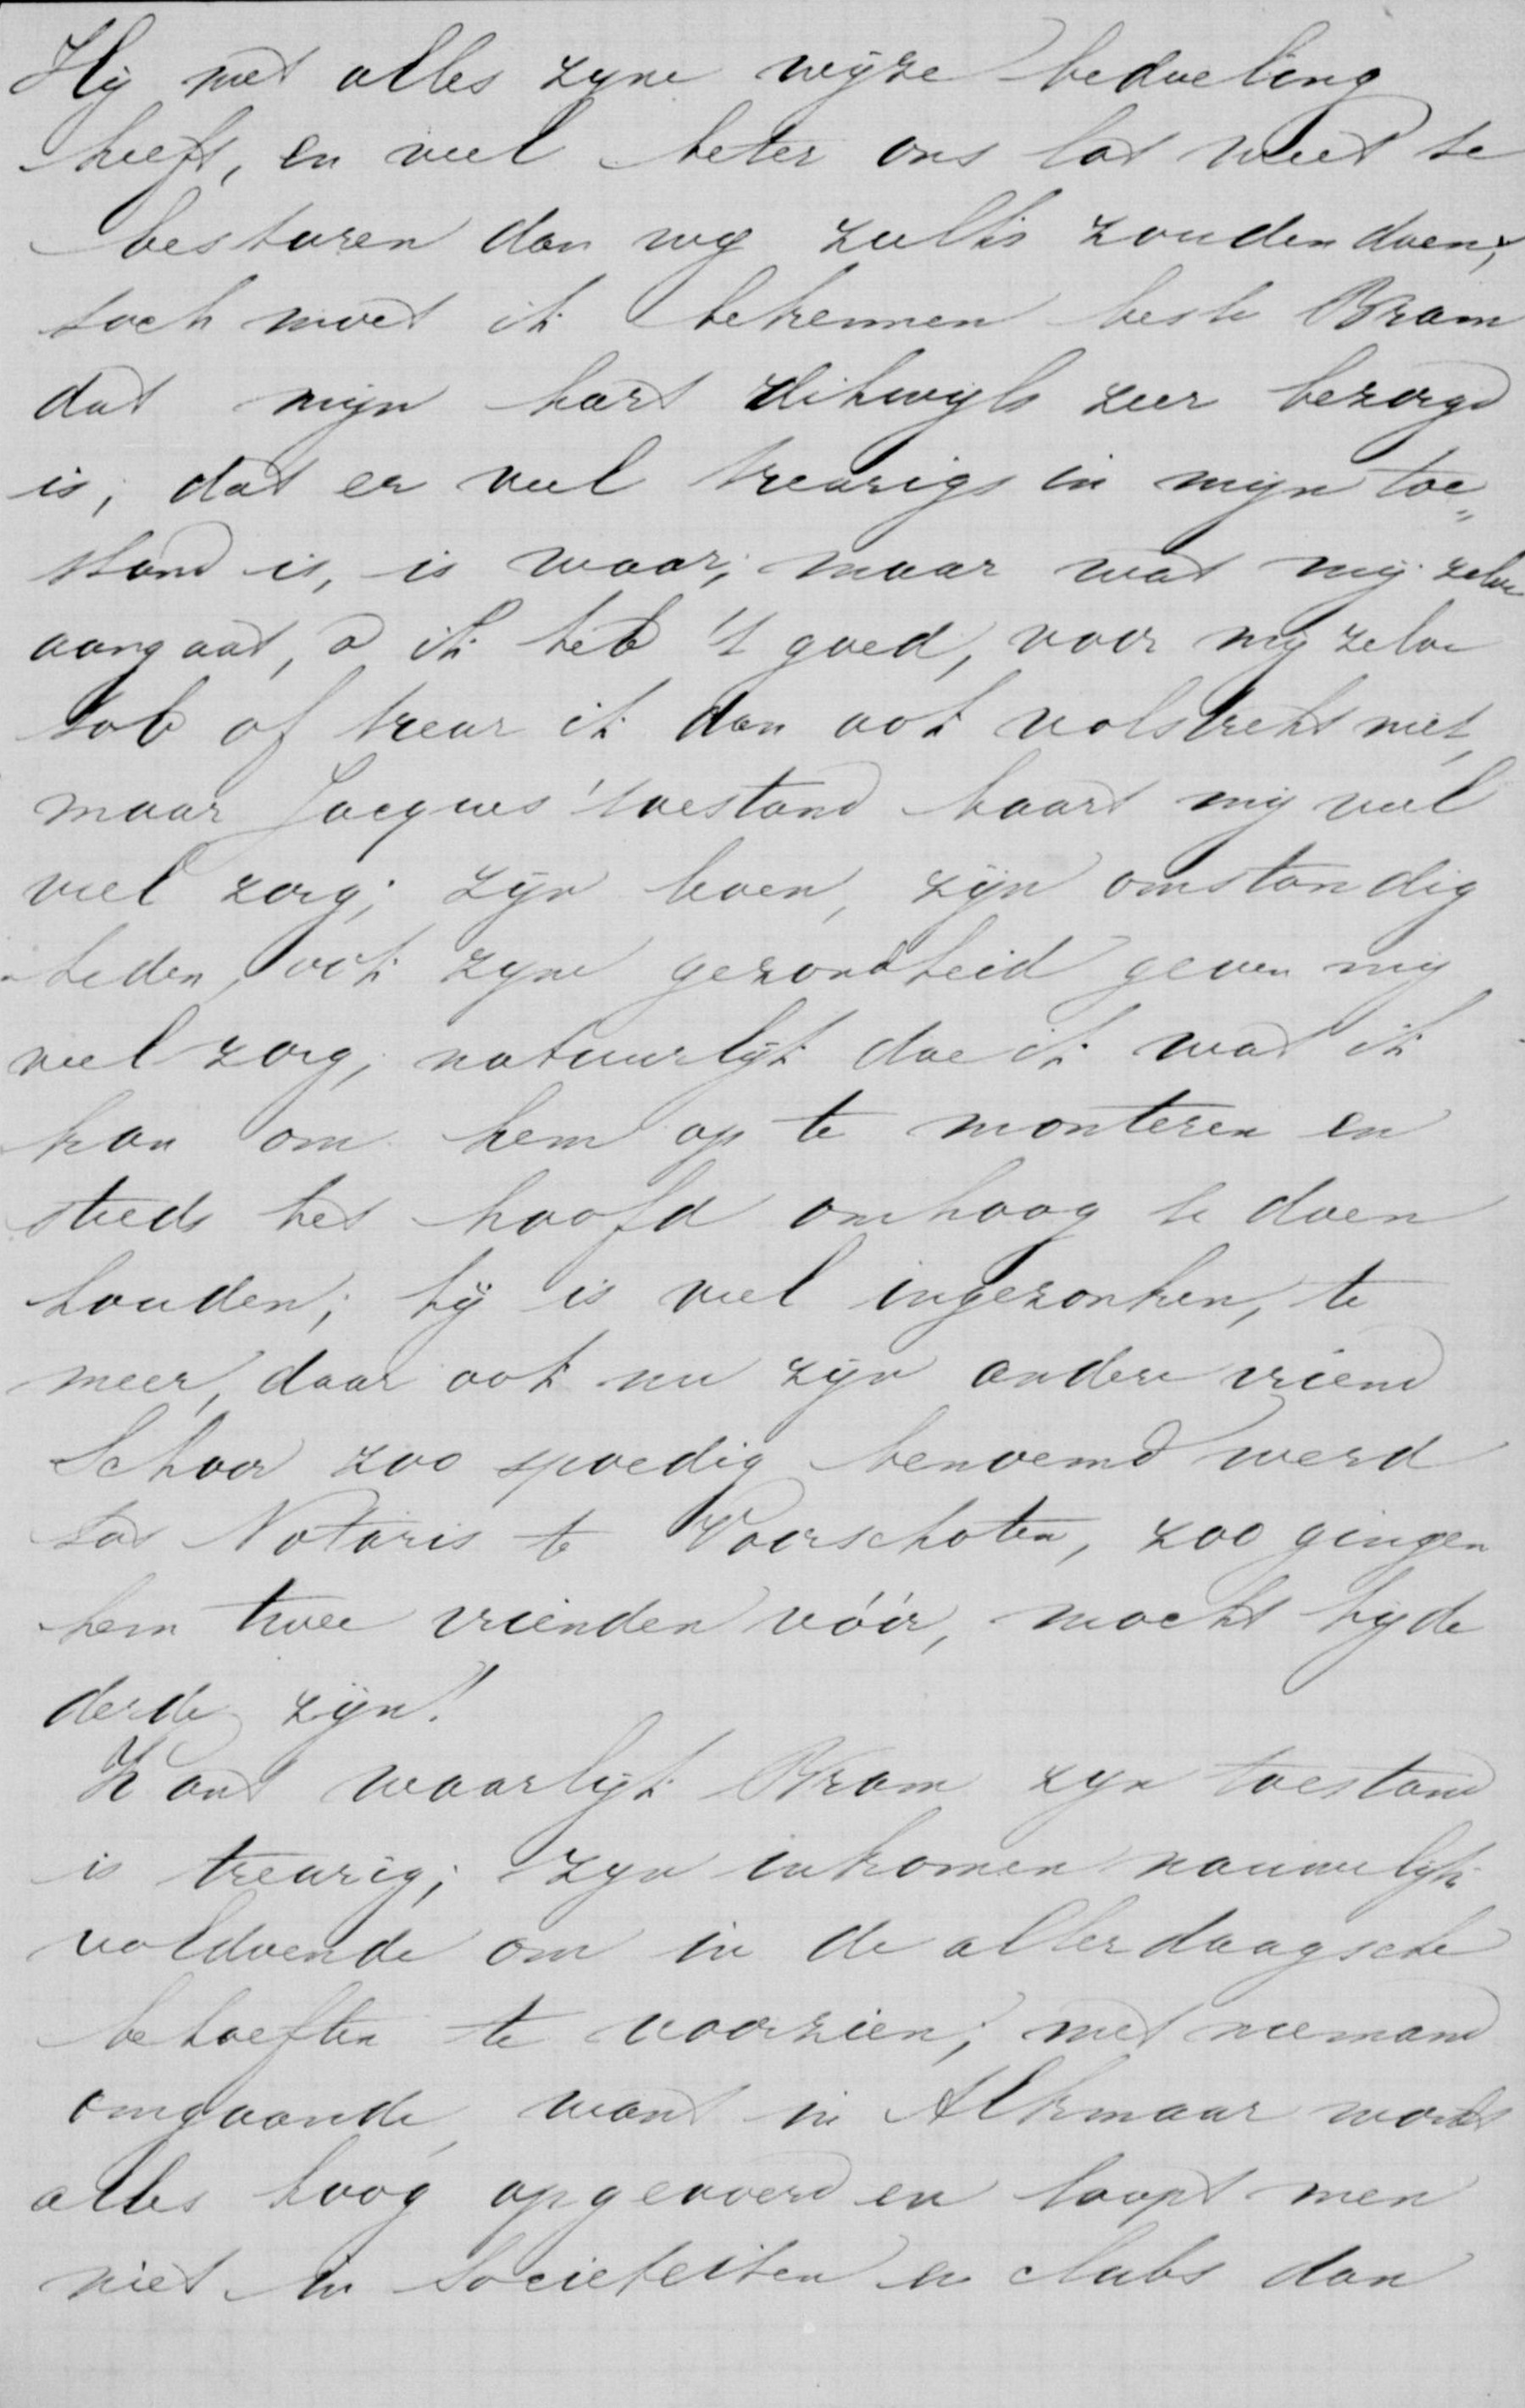 Hij met alles zyne wijze bedoeling
heeft, en veel beter ons lot weet te
besturen dan wij zulks zouden doen,
toch moet ik bekennen beste Bram
dat mijn hart dikwijls zeer bezorgd
is, dat er veel treurigs in mijn toe„
stand is, is waar, maar wat mij zelve
aangaat, o ik heb 't goed, voor mij zelve
tob of treur ik dan ook volstrekt niet,
maar Jacques' toestand baart mij veel
veel zorg; zijn leven, zijn omstandig
heden, ook zyne gezondheid geven mij
veel zorg, natuurlijk doe ik wat ik
kan om hem op te monteren en
steeds het hoofd omhoog te doen
houden; hij is veel ingezonken, te
meer, daar ook nu zijn andere vriend
Schoor zoo spoedig benoemd werd
tot Notaris te Voorschoten, zoo gingen
hem twee vrienden vóór, mocht hij de
derde zijn!
Want waarlijk Bram zyn toestand
is treurig; zyn inkomen nauwelijks
voldoende om in de allerdaagsche
behoeften te voorzien; met niemand
omgaande, want in Alkmaar wordt
alles hoog opgevoerd en loopt men
niet in societeiten en clubs dan